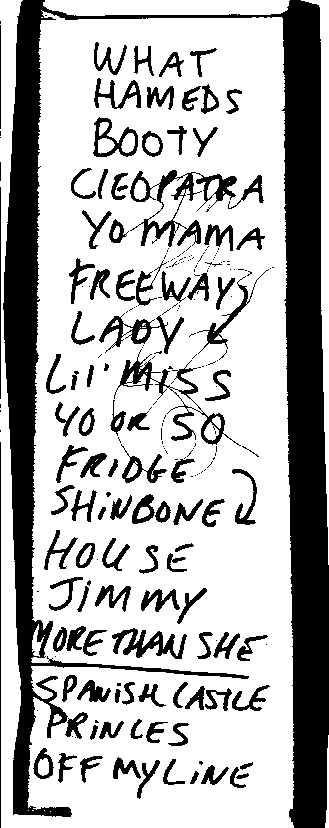 WHAT
HAMEDS
BOOTY
CLEOPATRA
YO MAMA
FREEWAY
LADY
LiL' MiSS
YO OR SO
FRIDGE
SHiNBONE
HOUSE
JiMMY
MORE THAN SHE
SPANiSH CASTLE
PRiNCES
OFF MY LiNE